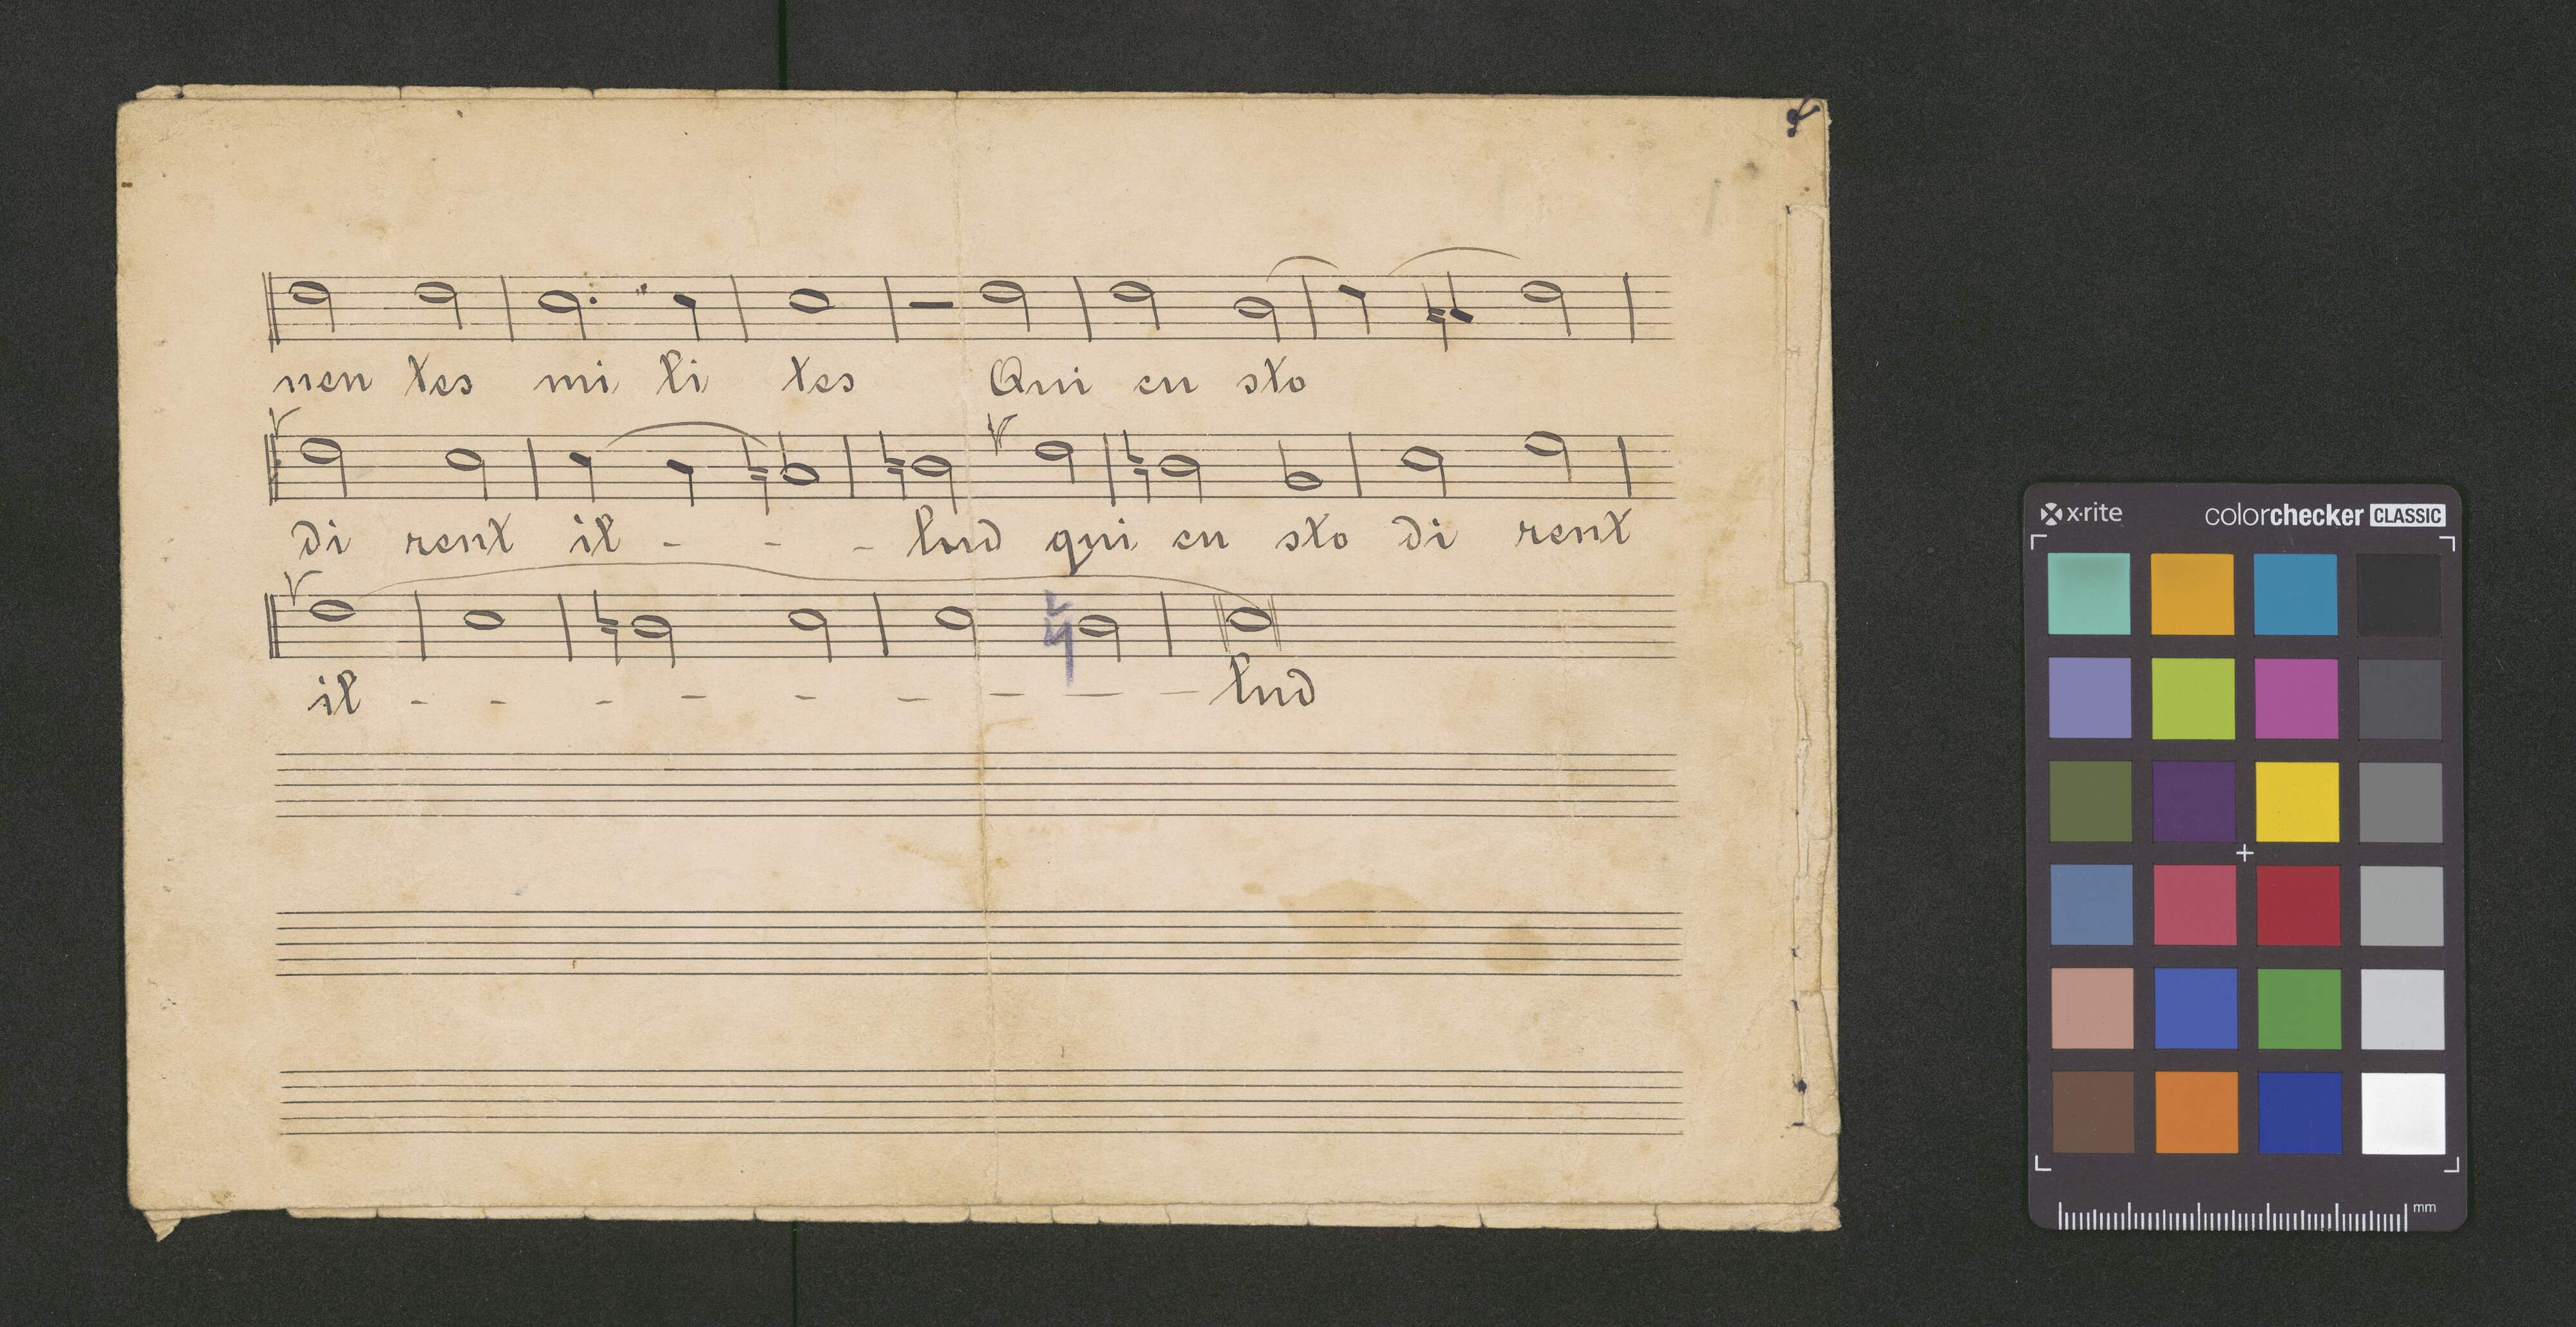 nen tes mi li tes Qui cu sto
di rent il - - - lud qui cu sto di rent
il - - - - - - - - - lud
x-rite colorchecker CLASSIC
mm